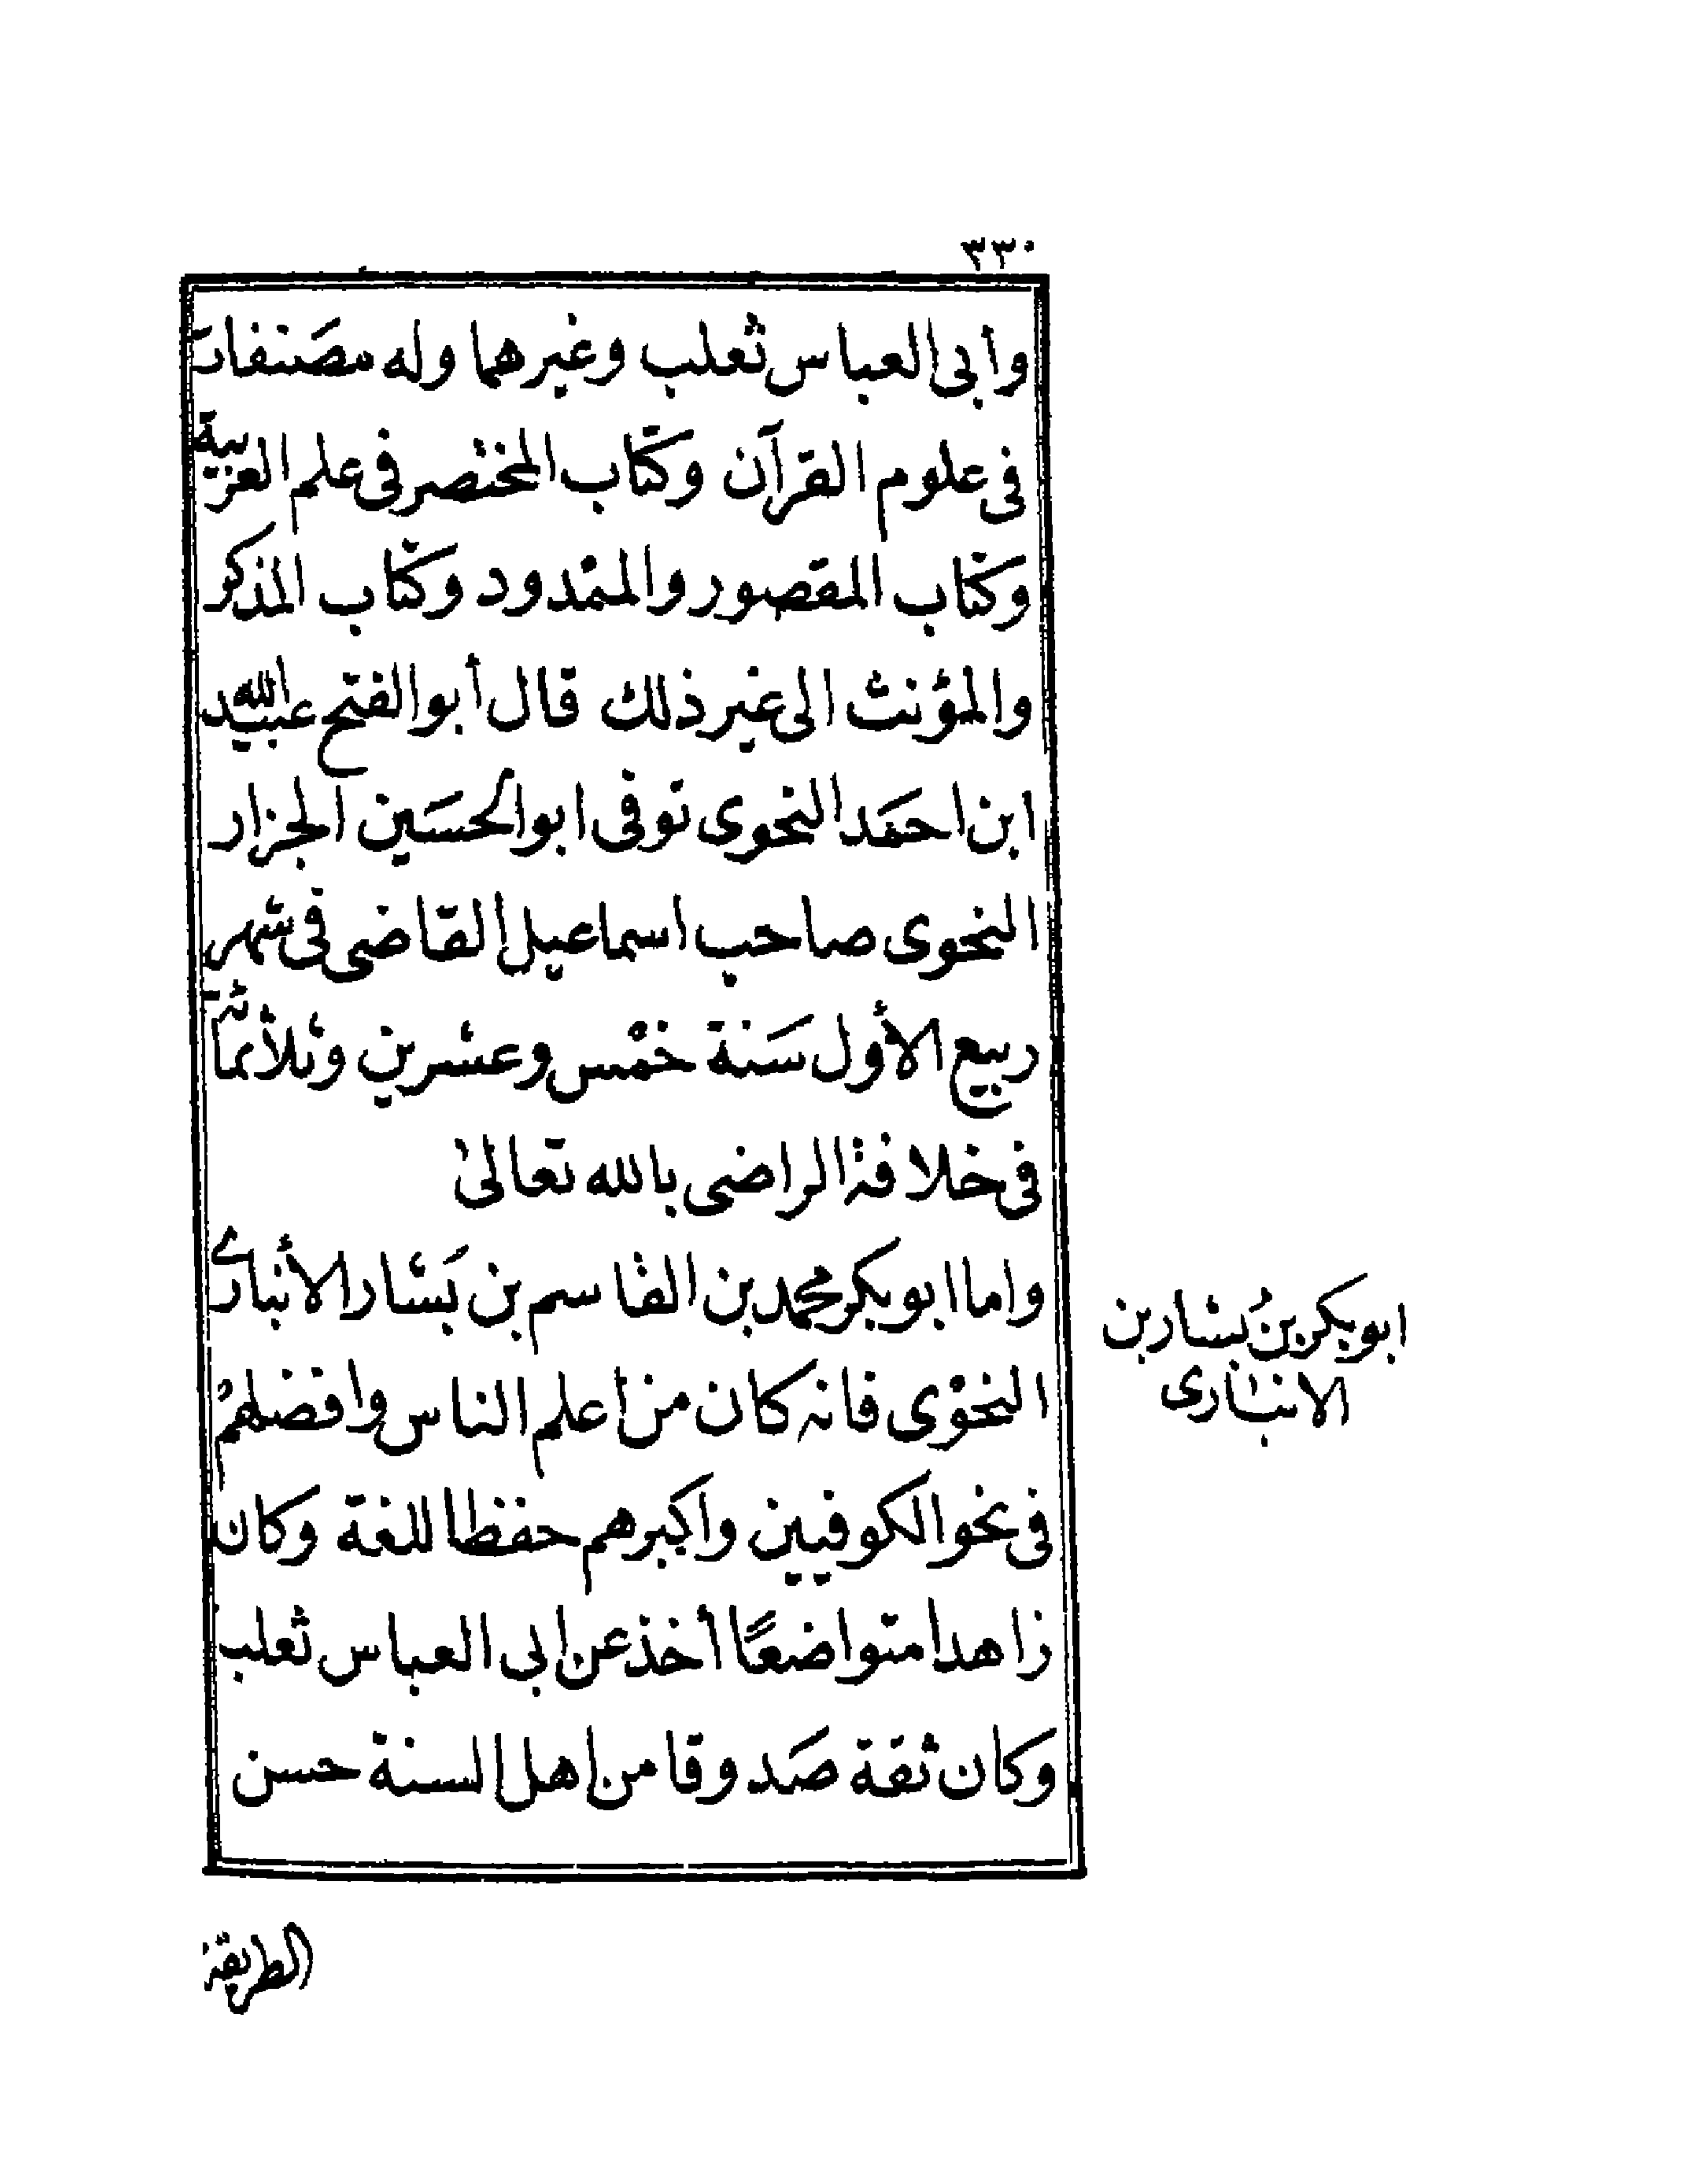 ٣٣٠
وأبى العباس ثعلب وغيرهما وله مصَنفات
فى علوم القرآن وكتاب المختصر فى علم العربية
وكتاب المقصور والممدود وكتاب المذكر
والمؤنث الى غير ذلك قال أبو الفتح عبيد الله
ابن احمَد النحوى توفى ابو الحسَين الجزار
النحوى صاحب اسماعيل القاضى فى شهر
ربيع الأول سَنة خمْس وعشرين وثلاثمائة
فى خلافة الراضى بالله تعالىٰ
واما ابو بكر محمد بن القاسم بن بَشار الأنبارى
النحوْى فانه كان من اعلم الناس وافضلهمْ
فى نحو الكوفيين واكبرهم حفظا للغة وكان
زاهدا متواضعًا أخذ عن ابى العباس ثعلب
وكان ثقة صَدوقا من اهل السنة حسن
ابو بكر بنُ بشار بن
الانبارى
الطريقة